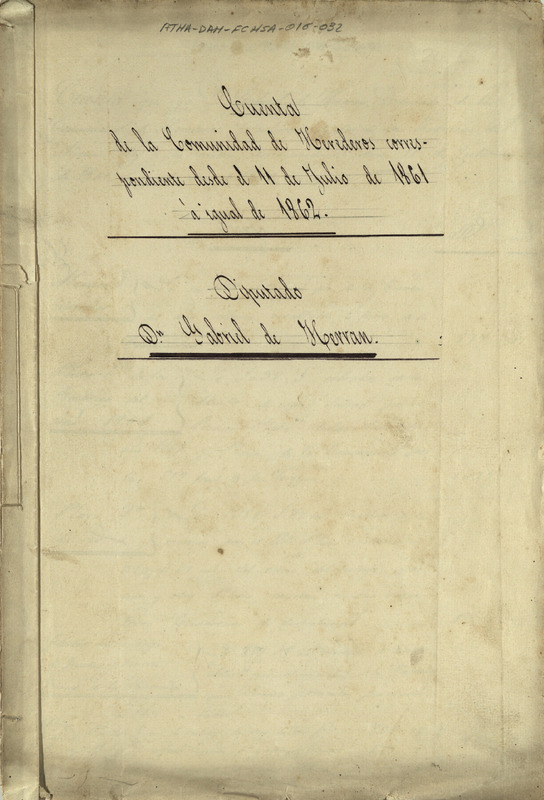 ATHA-DAH-FCHSA-016-032
Cuenta
de la Comunidad de Herederos corres-
pondiente desde el 11 de Julio de 1861
à igual de 1862.
Diputado
Dn Gabriel de Herran.